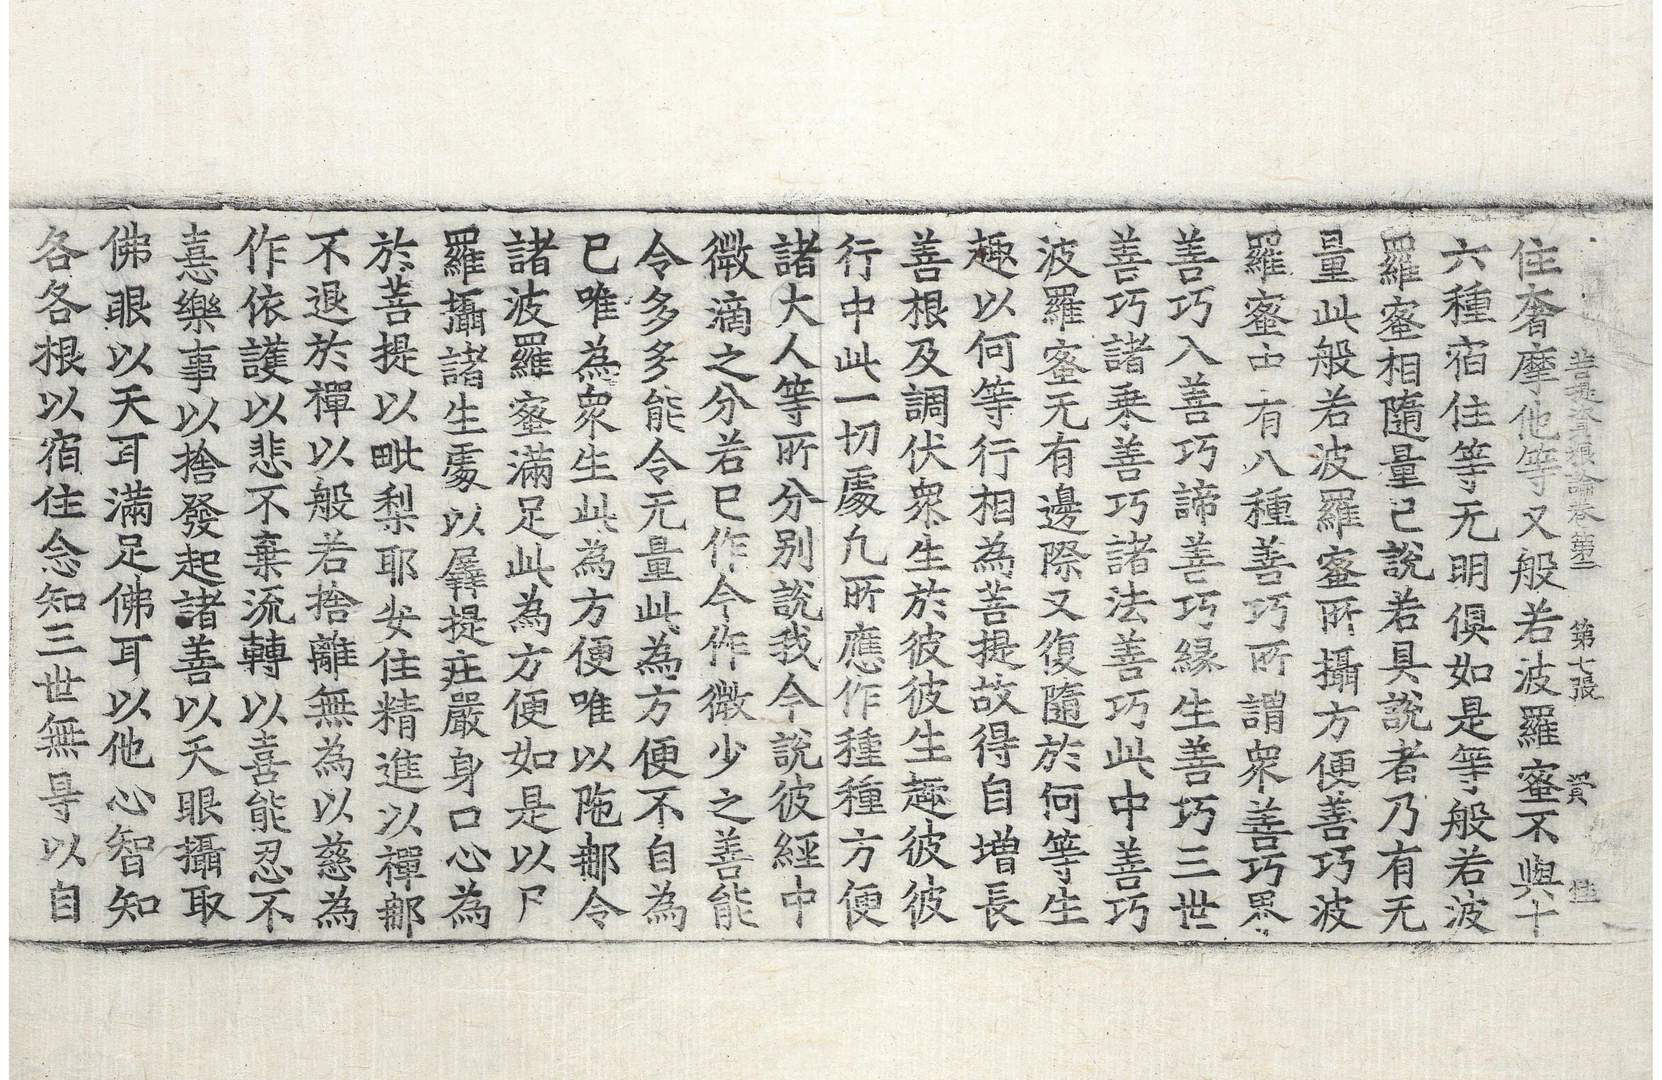 菩提資糧論卷第三　第七張　賢
住奢摩他等又般若波羅蜜不與十
六種宿住等无明俱如是等般若波
羅蜜相隨量已說若具說者乃有无
量此般若波羅蜜所攝方便善巧波
羅蜜中有八種善巧所謂衆善巧界
善巧入善巧諦善巧緣生善巧三世
善巧諸乘善巧諸法善巧此中善巧
波羅蜜无有邊際又復隨於何等生
趣以何等行相為菩提故得自增長
善根及調伏衆生於彼彼生趣彼彼
行中此一切處凢所應作種種方便
諸大人等所分别說我今說彼經中
微滴之分若已作今作微少之善能
令多多能令无量此為方便不自為
已唯為衆生此為方便唯以陁𨚗令
諸波羅蜜滿足此為方便如是以尸
羅攝諸生處以羼提疘嚴身口心為
於菩提以毗梨耶安住精進以禪𨚗
不退於禪以般若捨離無為以慈為
作依護以悲不棄流轉以喜能忍不
憙樂事以捨發起諸善以天眼攝取
佛眼以天耳滿足佛耳以他心智知
各各根以宿住念知三世無㝵以自